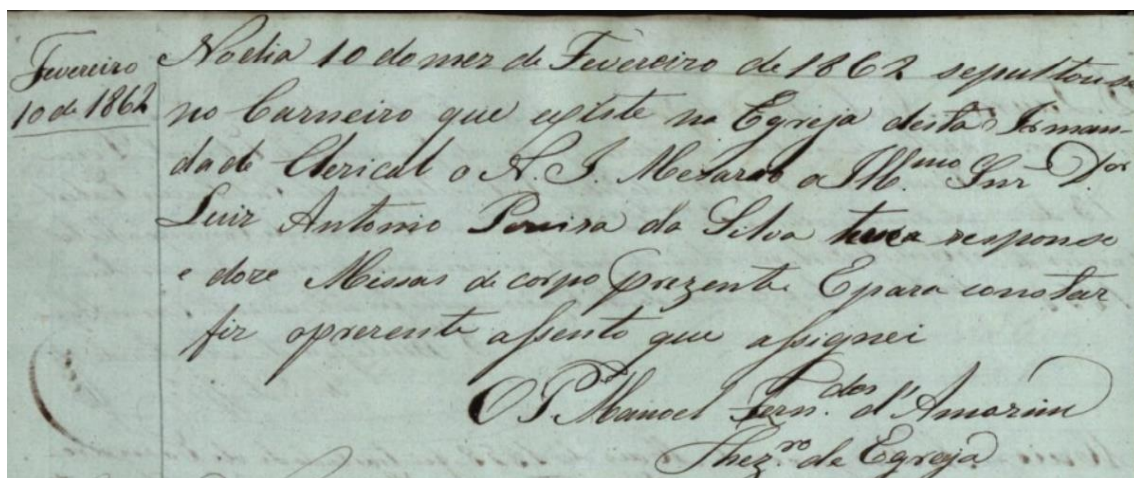 Fevereiro
10 de 1862
No dia 10 do mez de Fevereiro de 1862 sepultou se
no Carneiro que existe na Egreja desta Irman-
dade Clerical o N. I. Mezario o Ill.mo Snr D.or
Luiz Antonio Pereira da Silva teve responso
e doze Missas de corpo prezente E para constar
fiz o prezente assento que assignei
O P. Manoel Fern.dos d'Amorim
Thez.ro da Egreja